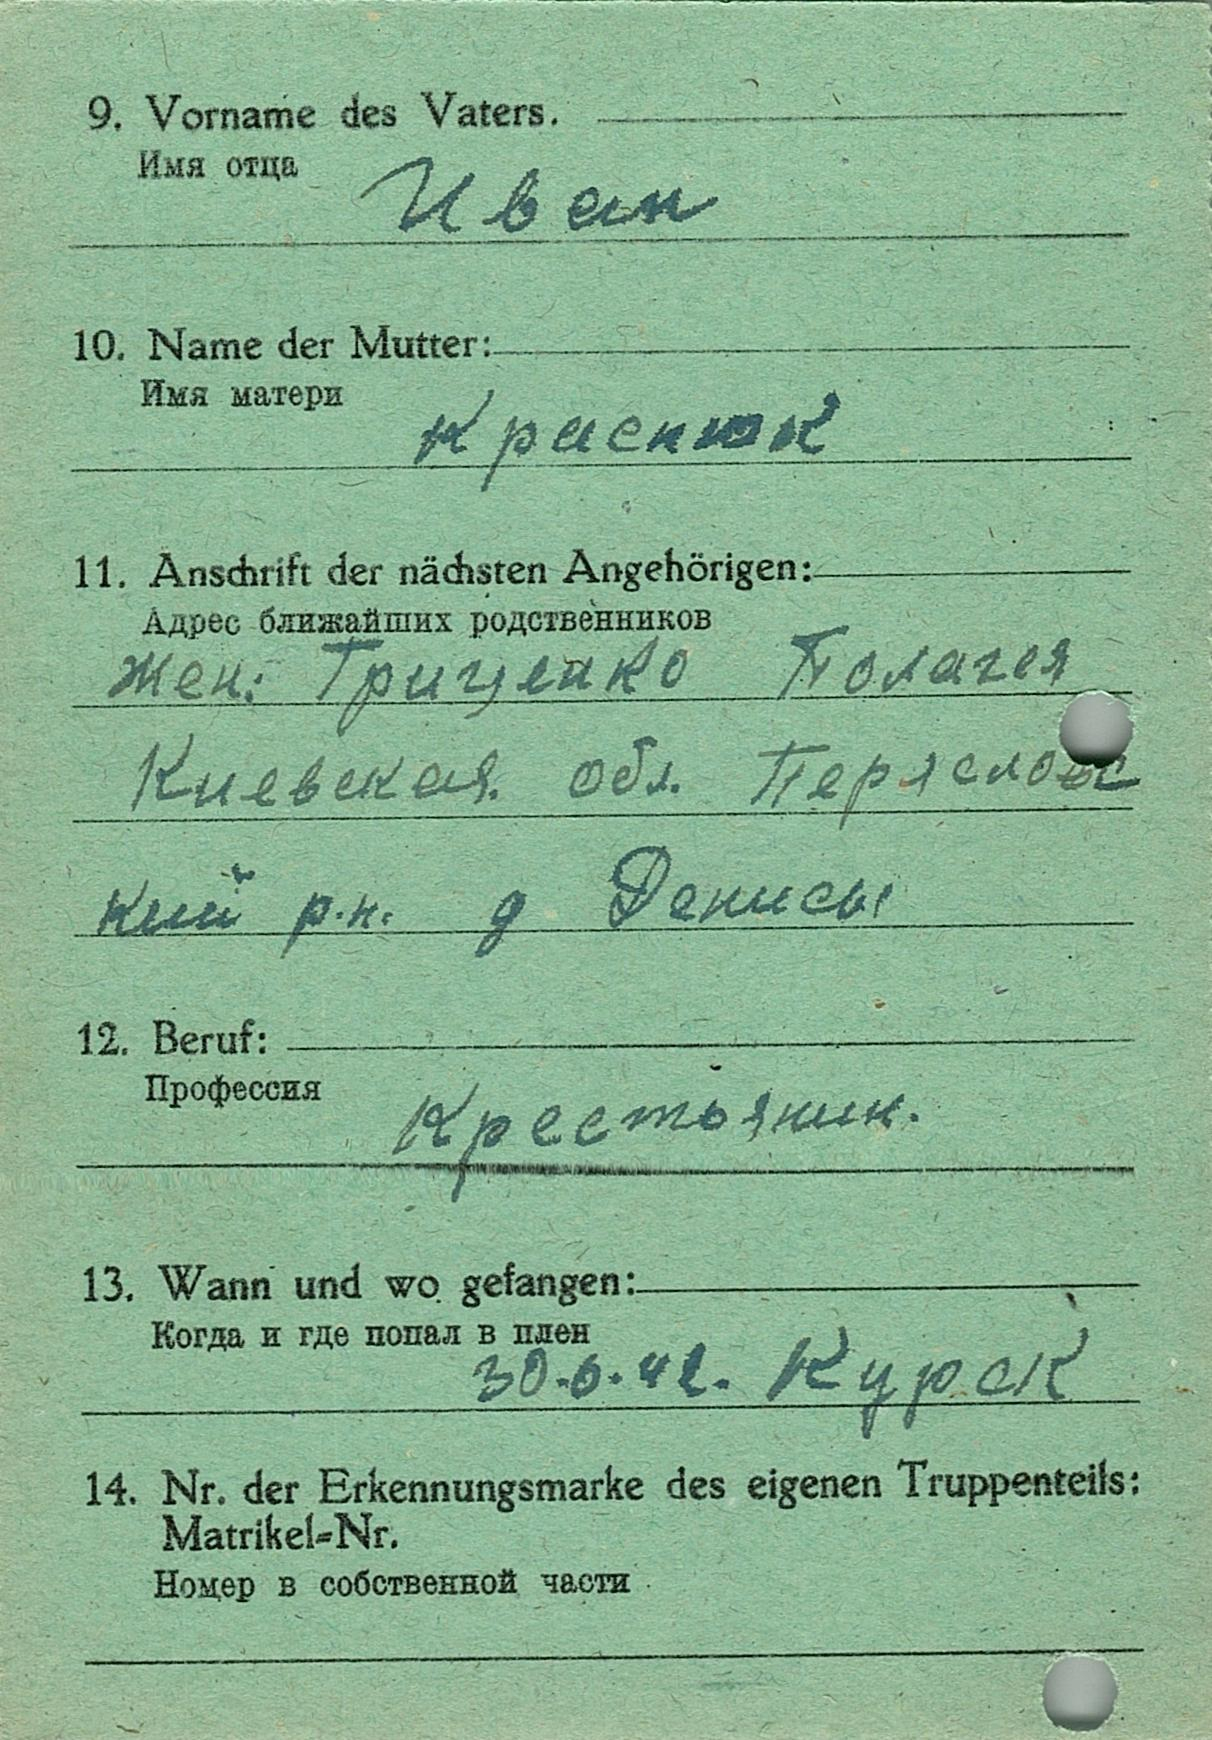 9. Vorname des Vaters.
Имя отца
Иван
10. Name der Mutter:
Имя матери
Краснюк
11. Anschrift der nächsten Angehörigen:
Адрес ближайших родственников
Жен: Гриценко Полагея
Киевская обл. Перясловс
кий р.н. д Денисы
12. Beruf:
Профессия
Крестьянин.
13. Wann und wo gefangen:
Когда и где попал в плен
30.6.42. Курск
14. Nr. der Erkennungsmarke des eigenen Truppenteils:
Matrikel-Nr.
Номер в собственной части